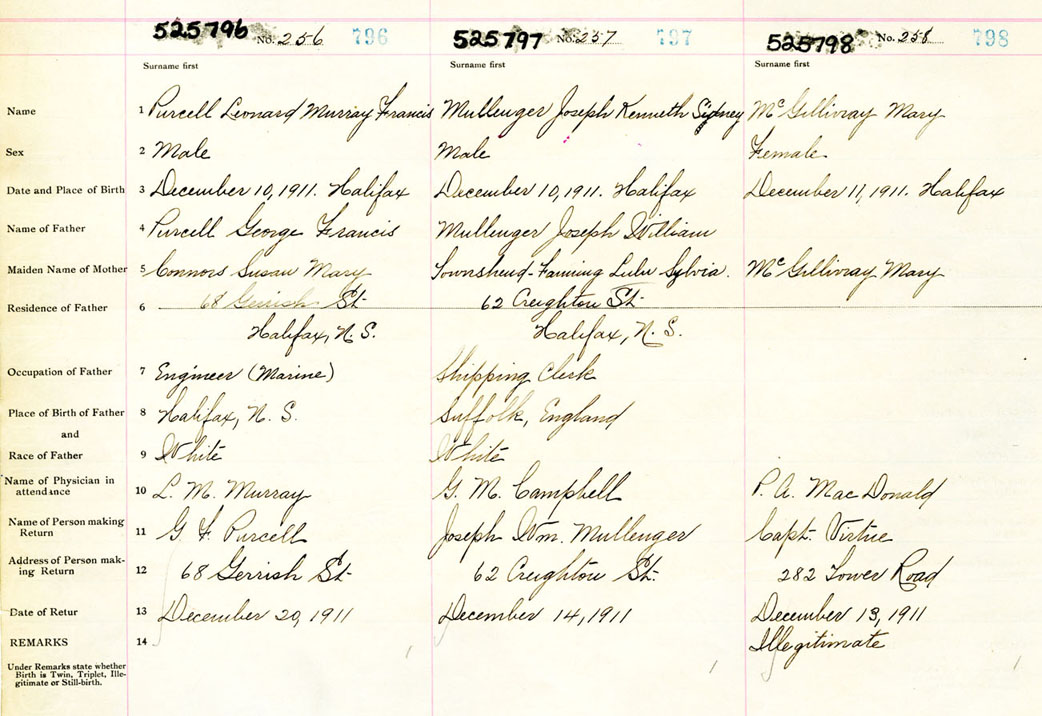 525796 No. 256 796 525797 No. 257 797 525798 No. 258 798
Surname first Surname first Surname first
Name 1 Purcell Leonard Murray Francis Mullenger Joseph Kenneth Sidney McGillivray Mary
Sex 2 Male Male Female
Date and Place of Birth 3 December 10, 1911. Halifax December 10, 1911. Halifax December 11, 1911. Halifax
Name of Father 4 Purcell George Francis Mullenger Joseph William
Maiden Name of Mother 5 Connors Susan Mary Townshend-Fanning Lulu Sylvia. McGillivray Mary
Residence of Father 6 68 Gerrish St. 62 Creighton St.
Halifax, N. S. Halifax, N. S.
Occupation of Father 7 Engineer (Marine) Shipping Clerk
Place of Birth of Father 8 Halifax, N. S. Suffolk, England
and
Race of Father 9 White White
Name of Physician in
attendance 10 L. M. Murray G. M. Campbell P. A. MacDonald
Name of Person making
Return 11 G F Purcell Joseph Wm. Mullenger Capt. Virtue
Address of Person mak-
ing Return 12 68 Gerrish St. 62 Creighton St. 282 Tower Road
Date of Retur 13 December 20, 1911 December 14, 1911 December 13, 1911
REMARKS 14 Illegitimate
Under Remarks state whether
Birth is Twin, Triplet, Ille-
gitimate or Still-birth.